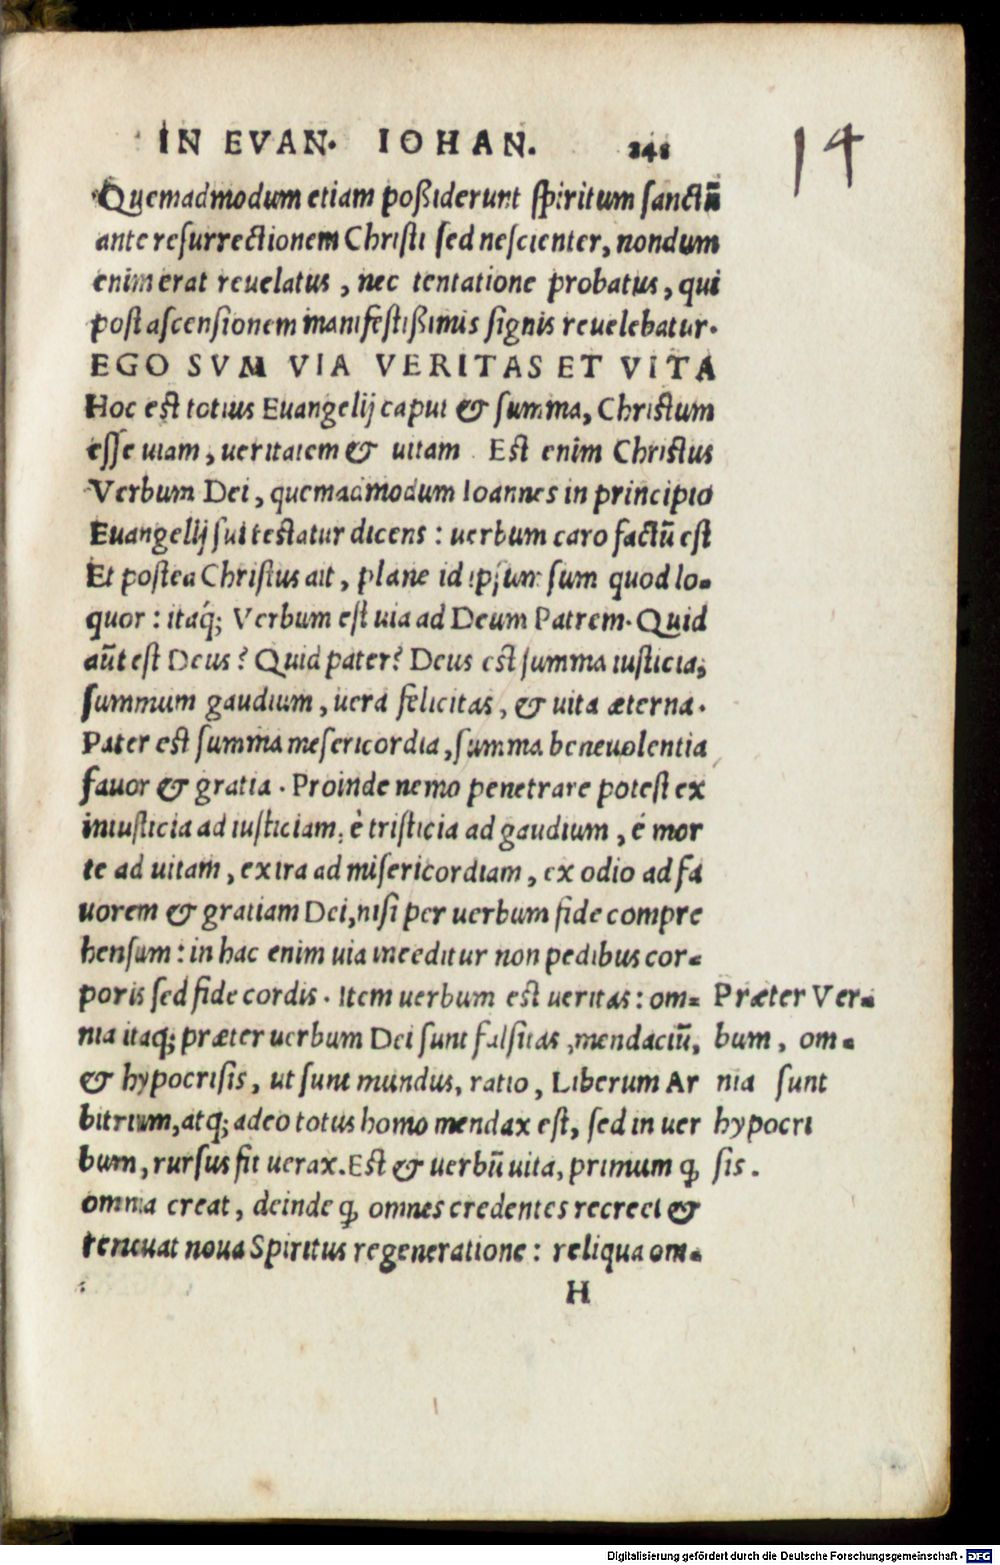 IN EVAN. IOHAN. 241
14
Quemadmodum etiam poßiderunt spiritum sanctū
ante resurrectionem Christi sed nescienter, nondum
enim erat reuelatus, nec tentatione probatus, qui
post ascensionem manifestißimis signis reuelebatur.
EGO SVM VIA VERITAS ET VITA
Hoc est totius Euangelij caput & summa, Christum
esse uiam, ueritatem & uitam. Est enim Christus
Verbum Dei, quemadmodum Ioannes in principio
Euangelij sui testatur dicens: uerbum caro factū est
Et postea Christus ait, plane id ipsum sum quod lo-
quor: itaq́; Verbum est uia ad Deum Patrem. Quid
aūt est Deus? Quid pater? Deus est summa iusticia,
summum gaudium, uera felicitas, & uita æterna.
Pater est summa mesericordia, summa beneuolentia
fauor & gratia. Proinde nemo penetrare potest ex
iniusticia ad iusticiam, è tristicia ad gaudium, è mor
te ad uitam, ex ira ad misericordiam, ex odio ad fa
uorem & gratiam Dei, nisi per uerbum fide compre
hensum: in hac enim uia inceditur non pedibus cor-
poris sed fide cordis. Item uerbum est ueritas: om-
nia itaq; præter uerbum Dei sunt falsitas, mendaciū,
& hypocrisis, ut sunt mundus, ratio, Liberum Ar
bitrium, atq; adeo totus homo mendax est, sed in uer
bum, rursus fit uerax. Est & uerbū uita, primum ꝙ
omnia creat, deinde ꝙ omnes credentes recreet &
reneuat noua Spiritus regeneratione: reliqua om-
Præter Ver-
bum, om-
nia sunt
hypocri
sis.
H
Digitalisierung gefördert durch die Deutsche Forschungsgemeinschaft - DFG